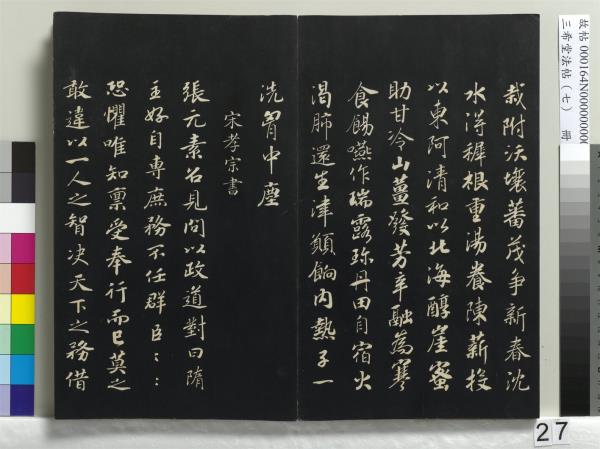 栽附沃壤蕃茂爭新春沈
水得穉根重湯養陳薪投
以東阿清和以北海醇崖蜜
助甘冷山薑發芳辛融為寒
食餳嚥作瑞露珍丹田自宿火
渴肺還生津願餉內熱子一
洗胷中塵
宋孝宗書
張元素召見問以政道對曰隋
主好自專庶務不任群臣〻〻
恐懼唯知稟受奉行而已莫之
敢違以一人之智决天下之務借
故帖 000164N000000000
三希堂法帖（七） 冊
27